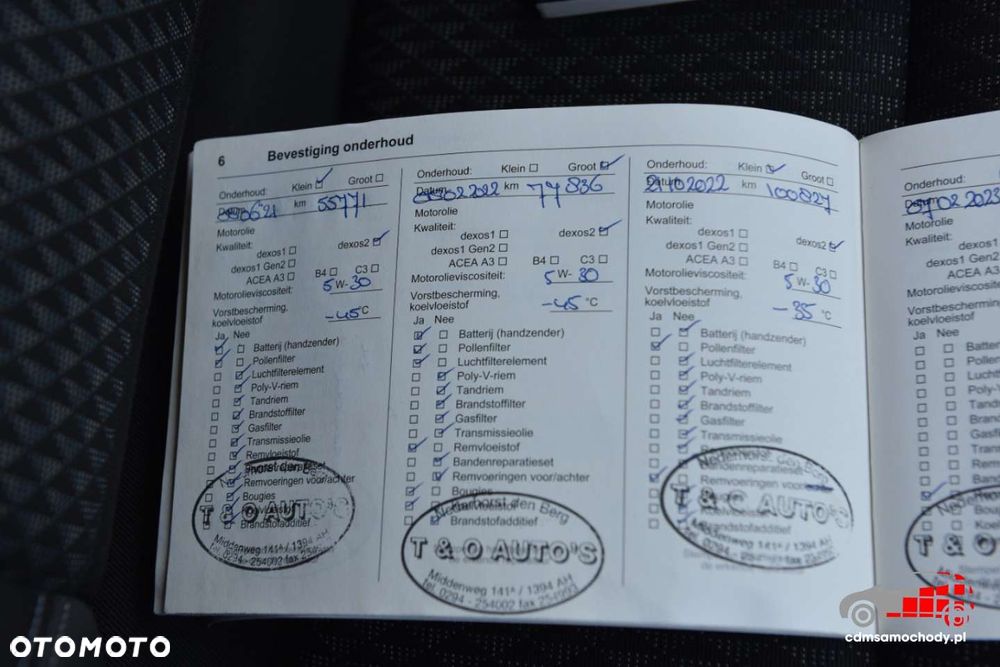 6 Bevestiging onderhoud
Onderhoud: Klein Groot
km 55771
Motorolie
Kwaliteit:
dexos1 dexos2
dexos1 Gen2
ACEA A3 B4 C3
Motorolieviscositeit: 5 W- 30
Vorstbescherming,
koelvloeistof -45 °C
Ja Nee
Batterij (handzender)
Pollenfilter
Luchtfilterelement
Poly-V-riem
Tandriem
Brandstoffilter
Gasfilter
Transmissieolie
Remvloeistof
Remvoeringen voor/achter
Bougies
Brandstofadditief
T & O AUTO'S
Middenweg 141ᴬ / 1394 AH
Onderhoud: Klein Groot
Datum km 77836
Motorolie
Kwaliteit:
dexos1 dexos2
dexos1 Gen2
ACEA A3 B4 C3
Motorolieviscositeit: 5 W- 30
Vorstbescherming,
koelvloeistof -45 °C
Ja Nee
Batterij (handzender)
Pollenfilter
Luchtfilterelement
Poly-V-riem
Tandriem
Brandstoffilter
Gasfilter
Transmissieolie
Remvloeistof
Bandenreparatieset
Remvoeringen voor/achter
Bougies
Brandstofadditief
Nederhorst den Berg
T & O AUTO'S
Middenweg 141ᴬ / 1394 AH
tel. 0294 - 254002 fax
Onderhoud: Klein Groot
21 10 2022 km 100827
Motorolie
Kwaliteit:
dexos1 dexos2
dexos1 Gen2
ACEA A3 B4 C3
Motorolieviscositeit: 5 W- 30
Vorstbescherming,
koelvloeistof -35 °C
Ja Nee
Batterij (handzender)
Pollenfilter
Luchtfilterelement
Poly-V-riem
Tandriem
Brandstoffilter
Gasfilter
Transmissieolie
Bandenreparatieset
Remvoeringen
Brandstofadditief
T & O AUTO'S
Middenweg 141ᴬ / 1394 AH
tel. 0294 - 254002 fax
Onderhoud:
02 2023
Motorolie
Kwaliteit:
dexos1
dexos1 Gen2
ACEA A3
Motorolieviscositeit
Vorstbescherming,
koelvloeistof
Ja Nee
T & O
OTOMOTO
cdmsamochody.pl